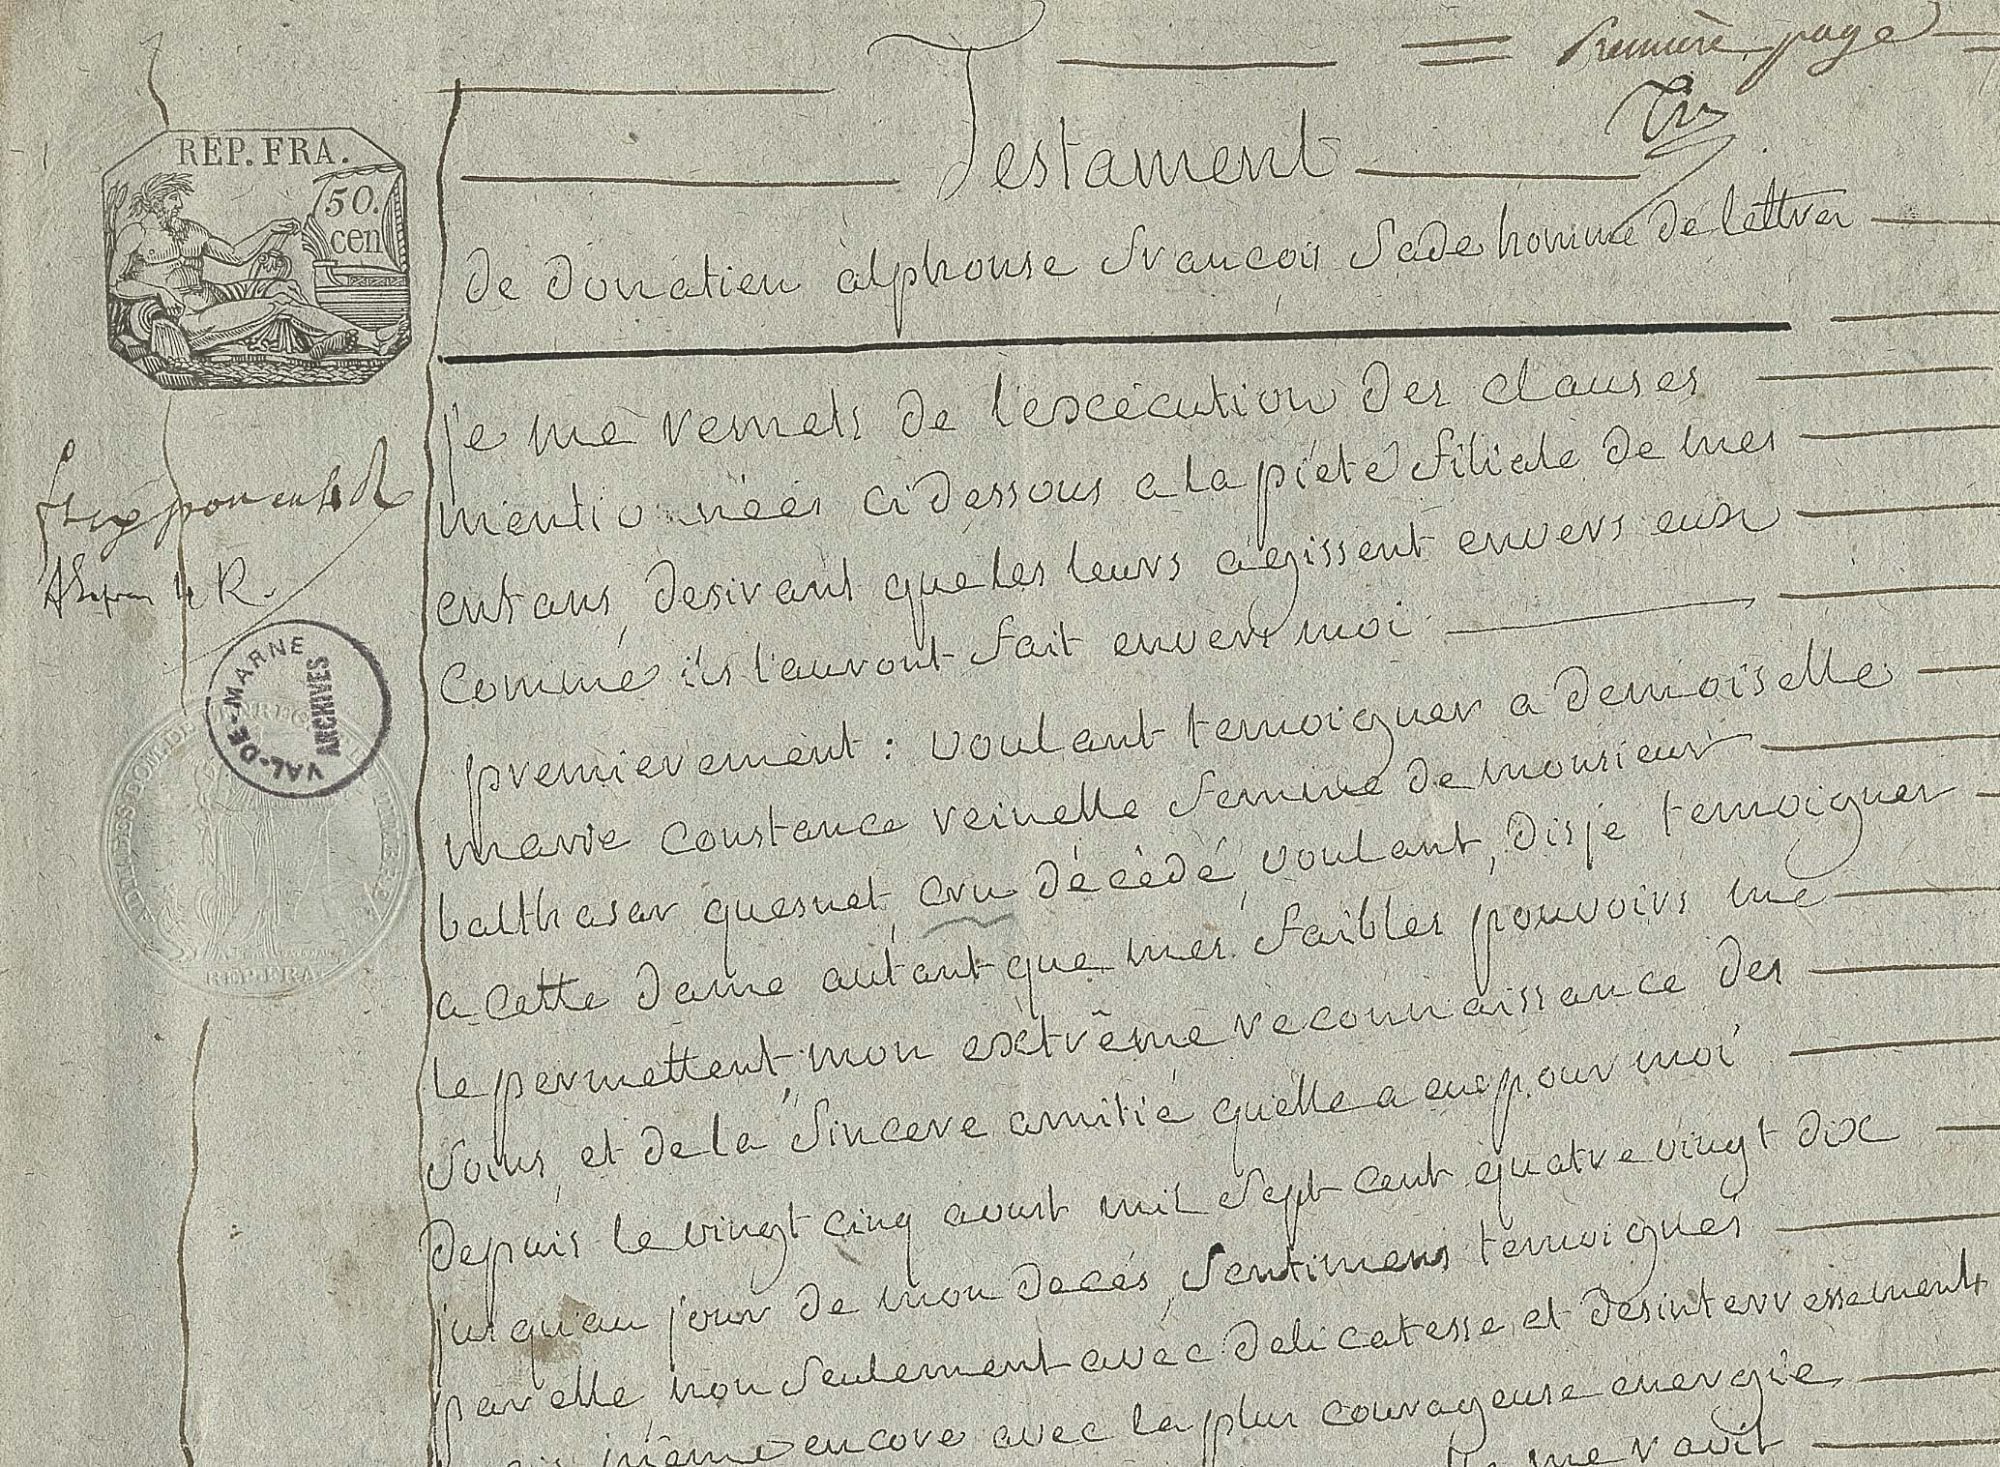 Première page
REP. FRA.
50.
cen
Testament
de donatien alphonse françois Sade homme de lettres
je me remets de l'exécution des clauses
mentionnées ci dessous a la pieté filiale de mes
enfans, desirant que les leurs agissent envers eux
comme ils l'auront fait envers moi
VAL-DE-MARNE
ARCHIVES
premierement : voulant temoigner a demoiselle
marie constance reinelle femme de monsieur
balthasar quesnet, cru décédé, voulant, disje temoigner
a cette dame autant que mes faibles pouvoirs me
REP. FRA.
le permettent, mon extrême reconnaissance des
soins, et de la sincere amitié quelle a eue pour moi
depuis le vingt cinq aoust mil sept cent quatre vingt dix
jusqu'au jour de mon decés, sentimens témoignés
par elle, non seulement avec delicatesse et desinterressement,
même encore avec la plus courageuse énergie,
me ravit